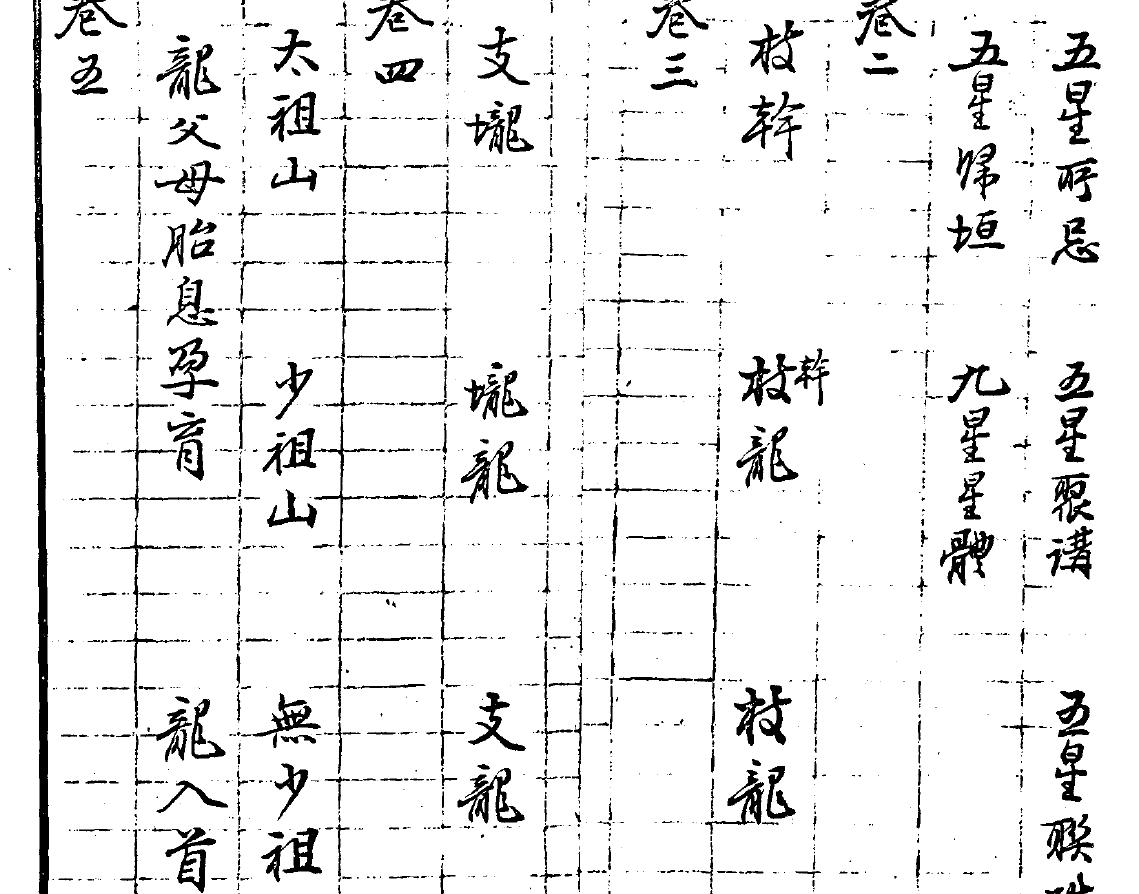 五星所忌 五星聚講 五星聯
五星歸垣 九星星體
卷二
枝幹 枝幹龍 枝龍
卷三
支壠 壠龍 支龍
卷四
太祖山 少祖山 無少祖
龍父母胎息孕育 龍入首
卷五